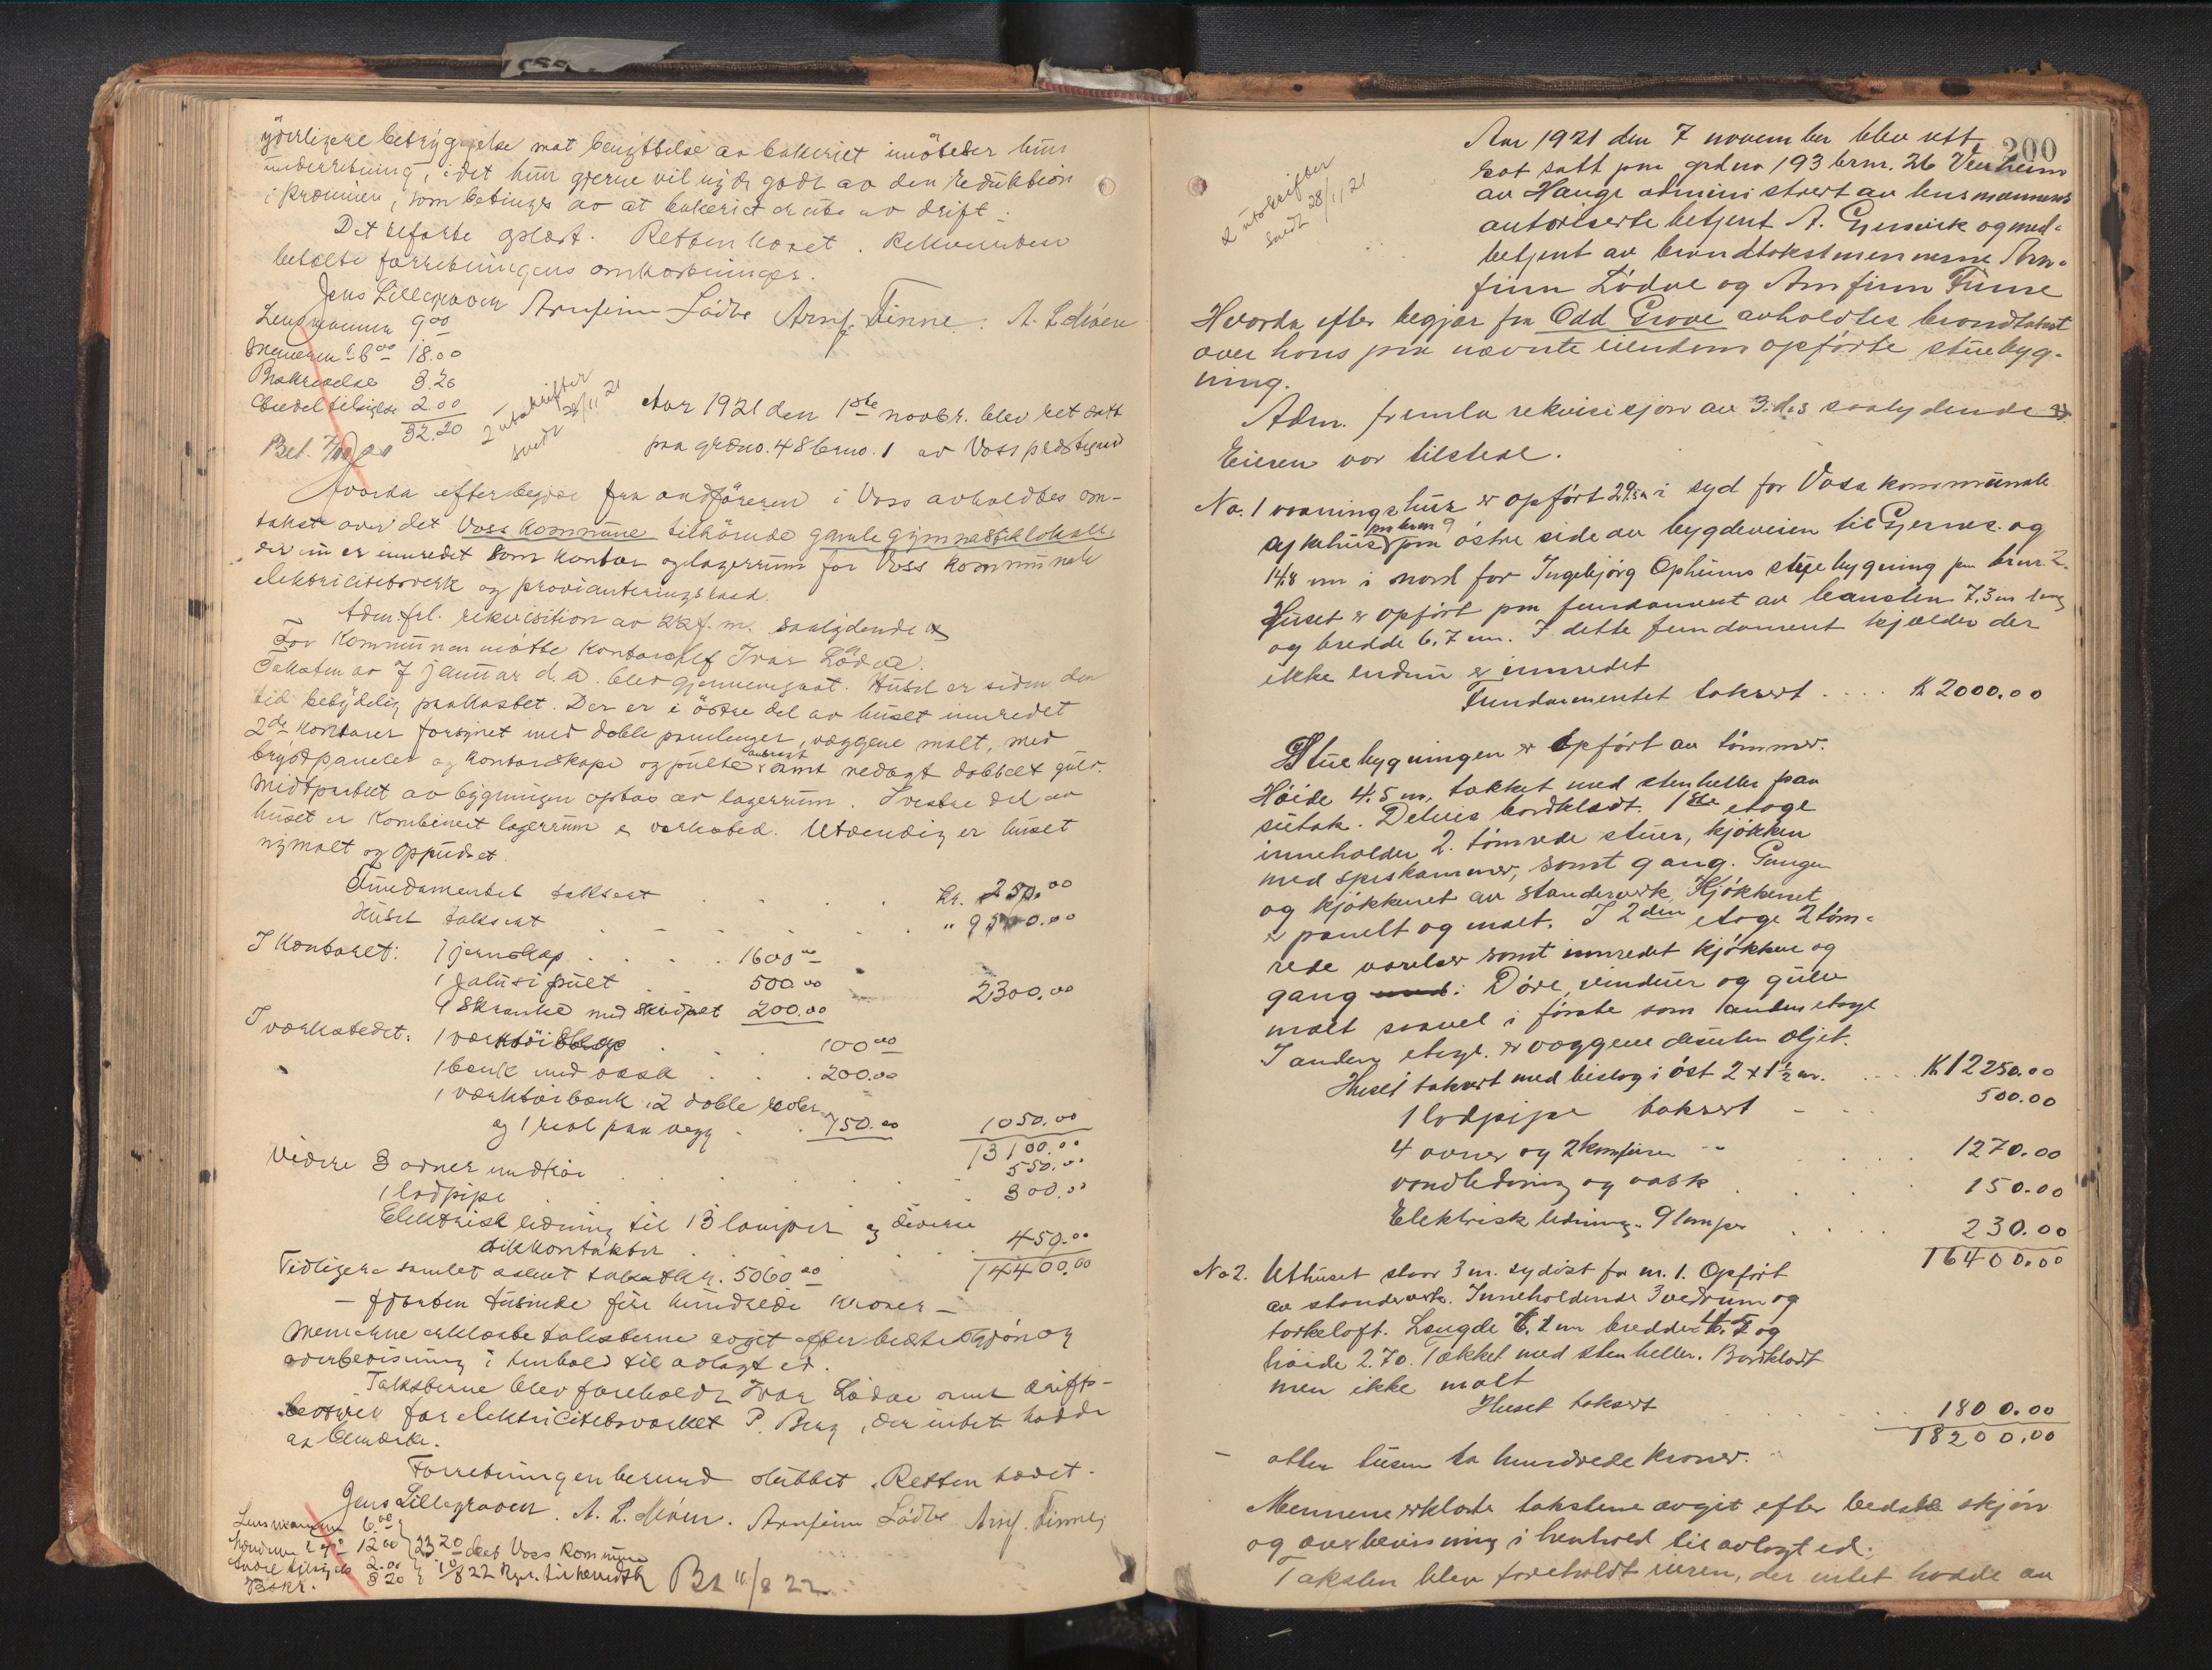 yderligere betryggelse mot benyttelse av bakeriet imöteser hun
underretning, idet hun gjerne vil nyde godt av den reduktion
i præmien, som betinges av at bakeriet er ute av drift.
Det refererte oplæst. Retten hævet. Rekvirenten
betalte forretningens omkostninger.
Jens Lillegraven Arnfinn Lödve Arnf. Finne. A. L. Möen
Lensmannen 9.00
Mennene à 6.00 18.00
Beskrivelse 3.20
Budel tilsigelse 2.00
32.20
2 utskrifter
sendt 28/11 21
Aar 1921 den 1ste novbr. blev ret satt
paa grdno. 48 brno. 1 av Voss prestegard
Hvorda efter begjær fra ordföreren i Voss avholdtes om-
takst over det Voss kommune tilhörende gamle gymnastiklokale,
der nu er innredet som kontor og lagerrum for Voss kommunale
elektricitetsverk og provianteringsraad.
Adm. frl. rekvisition av 22 f. m. saalydende
For kommunen mötte kontorchef Ivar Lödve.
Taksten av 7 januar d. a. blev gjennemgaat. Huset er siden den
tid betydelig paakostet. Der er i östre del av huset innredet
2de kontorer forsynet med doble panelinger, væggene malt, med
brystpaneler og kontorskape og pulte anbragt samt nedlagt dobbelt gulv.
Midtpartiet av bygningen optas av lagerrum. I vestre del av
huset er kombinert lagerrum & verksted. Utvendig er huset
nymalt og oppudset.
Fundamentet taksert . . . Kr. 250.00
Huset taksert . . . . . " 9500.00
I Kontoret: 1 jernskap . . . . 1600.00
1 jalusipult . 500.00
1 skranke med skrivpult 200.00 2300.00
I verkstedet: 1 verktöiskap . . . 100.00
1 benk med vask . . . 200.00
1 verktöibenk, 2 doble reoler
og 1 reol paa vegg . . 750.00 1050.00
13100.00
Videre 3 ovner med rör . . . . . 550.00
1 lodpipe . . . . 300.00
Elektrisk ledning til 13 lamper og diverse
stikkontakter . . . . . 450.00
Tidligere samlet takst kr. 5060.00 14400.00
– fjorten tusinde fire hundrede kroner –
Mennene erklærte taksterne avgit efter bedste skjön og
overbevisning i henhold til avlagt ed.
Taksterne blev foreholdt Ivar Lödve samt drifts-
bestyrer for elektricitetsverket P. Berg, der intet hadde
at bemerke.
Forretningen berend sluttet. Retten hævet.
Jens Lillegraven. A. L. Möen. Arnfinn Lödve Arnf. Finne,
Lensmannen 6.00
Mennene 12.00
2.00
Beskr. 3.20
23.20 Voss kommune
Bt 11/8 22
200
Aar 1921 den 7 november blev rett
sat satt paa grdno 193 brnr. 26 Venheim
av Hauge administrert av lensmannens
autoriserte betjent A. Gjernvik og med-
betjent av brandtakstmennerne Arn-
finn Lödve og Arnfinn Finne
2 utskrifter
sendt 28/11 21
Hvorda efter begjær fra Odd Grove avholdtes brandtakst
over hans paa nævnte eiendom opförte stuebyg-
ning.
Adm. fremla rekvisisjon av 3. ds saalydende
Eieren var tilstede.
No. 1 vaaningshus er opfört 29.5 m i syd for Voss kommunale
sykehus paa brnr 9 paa östre side av bygdeveien til Gjernes og
14.8 m i nord for Ingebjörg Opheims stuebygning paa brnr 2.
Huset er opfört paa fundament av 7.3 m lang
og bredde 6.7 m. I dette fundament kjelder der
ikke endnu er innredet
Fundamentet taksert . . . . Kr 2000.00
Stuebygningen er opfört av tömmer.
Höide 4.5 m. takket med stenheller paa
sutak. Delvis bordklædt. 1ste etage
inneholder 2 tömrede stuer, kjökken
med spiskammer, samt gang. Gangen
og kjökkenet av standerverk. Kjökkenet
er panelt og malt. I 2den etage 2 töm-
rede værelser samt innredet kjökken og
gang med. Döre, vinduer og gulv
malt saavel i förste som anden etage
I anden etage er væggene desuten oljet.
Huset taksert med bislag i öst 2 x 1½ m. . . . Kr 12250.00
1 lodpipe taksert – – . 500.00
4 ovner og 2 komfurer – " . . . 1270.00
vandledning og vask . . . 150.00
Elektrisk ledning. 9 lamper . . . 230.00
16400.00
No 2. Uthuset staar 3 m. sydöst for nr. 1. Opfört
av standerverk. Inneholdende 3 vedrum og
törkeloft. Længde 6.1 m bredde 4.5 og
höide 2.70. Tækket med stenheller. Bordklædt
men ikke malt
Huset taksert . . . . . 1800.00
18200.00
– atten tusen to hundrede kroner. –
Mennene erklærte takstene avgit efter bedste skjön
og overbevisning i henhold til avlagt ed.
Taksten blev foreholdt eieren, der intet hadde av